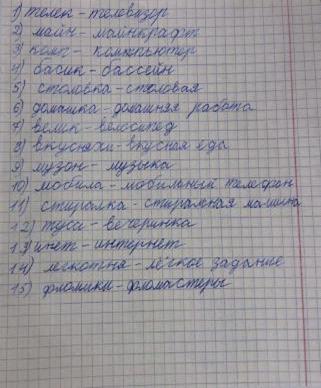 1) телек - телевизор
2) майн - майнкрафт
3) комп - компьютер
4) басик - бассейн
5) столовка - столовая
6) домашка - домашняя работа
7) велик - велосипед
8) вкусняхи - вкусная еда
9) музон - музыка
10) мобила - мобильный телефон
11) стиралка - стиральная машина
12) туса - вечеринка
13) инет - интернет
14) легкотня - лёгкое задание
15) фломики - фломастеры